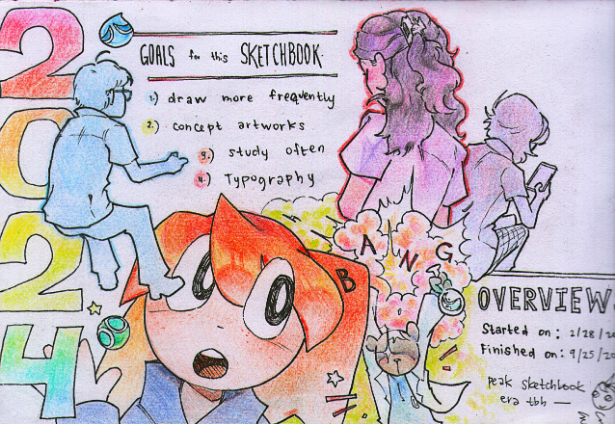 2024
GOALS for this SKETCHBOOK
1.) draw more frequently
2.) concept artworks
3.) study often
4.) Typography
BANG
OVERVIEW
Started on: 2/28/
Finished on: 9/25/
peak sketchbook
era tbh —